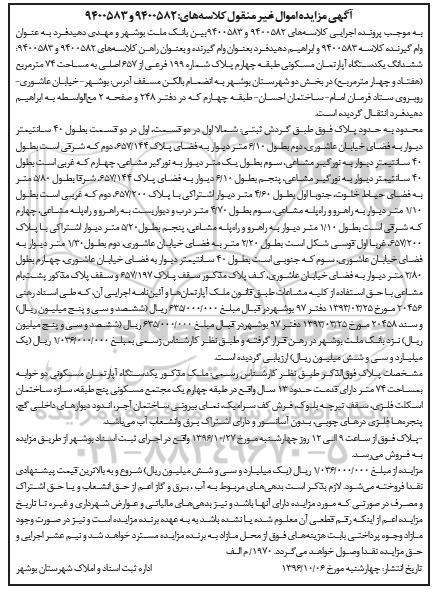 آگهی مزایده اموال غیر منقول کلاسه‌های: ۹۴۰۰۵۸۲ و ۹۴۰۰۵۸۳
به موجب پرونده اجرایی کلاسه‌های ۹۴۰۰۵۸۲ و ۹۴۰۰۵۸۳ بین بانک ملت بوشهر و مهدی دهیدفرد به عنوان
وام گیرنده کلاسه ۹۴۰۰۵۸۳ و ابراهیم دهیدفرد بعنوان وام گیرنده و بعنوان راهن کلاسه‌های ۹۴۰۰۵۸۲ و ۹۴۰۰۵۸۳،
ششدانگ یکدستگاه آپارتمان مسکونی طبقه چهارم پلاک شماره ۱۹۹ فرعی از ۶۵۷ اصلی به مساحت ۷۴ مترمربع
(هفتاد و چهار مترمربع) در بخش دو شهرستان بوشهر به انضمام بالکن مسقف آدرس: بوشهر - خیابان عاشوری-
روبروی ستاد فرمان امام- ساختمان احسان- طبقه چهارم که در دفتر ۲۴۸ و صفحه ۲ مع‌الواسطه به ابراهیم
دهیدفرد انتقال گردیده است.
محدود به حدود پلاک فوق طبق گردش ثبتی: شمالا اول در دو قسمت، اول در دو قسمت بطول ۴۰ سانتیمتر
دیوار به فضای خیابان عاشوری، دوم بطول ۶/۱۰ متر دیوار به فضای پلاک ۶۵۷/۱۴۴، دوم که شرقی است بطول
۴۰ سانتیمتر دیوار به نورگیر مشاعی، سوم بطول یک متر دیوار به نورگیر مشاعی، چهارم که غربی است بطول
۴۰ سانتیمتر دیوار به نورگیر مشاعی، پنجم بطول ۶/۱۰ دیوار به فضای پلاک ۶۵۷/۱۴۴، شرقا بطول ۵/۸۰ متر
به فضای حیاط خلوت، جنوبا اول بطول ۴/۶۰ متر دیوار اشتراکی با پلاک ۶۵۷/۲۰۰، دوم که غربی است بطول
۱/۱۰ متر دیوار به راهرو و راه‌پله مشاعی، سوم بطول ۴/۷۰ متر درب و دیواریست به راهرو و راه‌پله مشاعی، چهارم
که شرقی است بطول ۱/۱۰ متر دیوار به راهرو و راه‌پله مشاعی، پنجم بطول ۵/۲۰ متر دیوار اشتراکی با پلاک
۶۵۷/۲۰۰، غربا اول قوسی شکل است بطول ۲/۲۰ متر به فضای خیابان عاشوری، دوم بطول ۱/۳۰ متر دیوار به
فضای خیابان عاشوری، سوم که جنوبی است بطول ۴۰ سانتیمتر دیوار به فضای خیابان عاشوری، چهارم بطول
۲/۸۰ متر دیوار به فضای خیابان عاشوری، کف پلاک مذکور سقف پلاک ۶۵۷/۱۹۷ و سقف پلاک مذکور پشت‌بام
مشاعی با حق استفاده از کلیه مشاعات طبق قانون ملک آپارتمان‌ها و آئین‌نامه اجرایی آن، که طی اسناد رهنی
۲۰۴۵۶ مورخ ۱۳۹۳/۰۳/۲۵ دفتر ۹۷ بوشهر در قبال مبلغ ۶۳۵/۰۰۰/۰۰۰ ریال (ششصد و سی و پنج میلیون ریال)
و سند ۲۰۴۵۸ مورخ ۱۳۹۳/۰۳/۲۵ دفتر ۹۷ بوشهر در قبال مبلغ ۶۳۵/۰۰۰/۰۰۰ ریال (ششصد و سی و پنج میلیون
ریال) نزد بانک ملت بوشهر در رهن قرار گرفته و طبق نظر کارشناس رسمی بمبلغ ۱/۰۳۶/۰۰۰/۰۰۰ ریال (یک
میلیارد و سی و شش میلیون ریال) ارزیابی گردیده است.
مشخصات پلاک فوق‌الذکر طبق نظر کارشناس رسمی: ملک مذکور یکدستگاه آپارتمان مسکونی دو خوابه
بمساحت ۷۴ متر دارای قدمت حدود ۱۳ سال واقع در طبقه چهارم یک مجتمع مسکونی پنج طبقه، سازه ساختمان
اسکلت فلزی، سقف تیرچه بلوک، فرش کف سرامیک، نمای بیرونی ساختمان آجر، اندود دیوارهای داخلی گچ،
پنجره‌ها فلزی درهای چوبی، بدون آسانسور و دارای اشتراک برق و انشعاب آب می‌باشد.
-پلاک فوق از ساعت ۹ الی ۱۲ روز چهارشنبه مورخ ۱۳۹۶/۱۰/۲۷ واقع در اجرای ثبت اسناد بوشهر از طریق مزایده
به فروش می‌رسد.
مزایده از مبلغ ۱/۰۳۶/۰۰۰/۰۰۰ ریال (یک میلیارد و سی و شش میلیون ریال) شروع و به بالاترین قیمت پیشنهادی
نقدا فروخته می‌شود. لازم بذکر است بدهی‌های مربوط به آب، برق و گاز اعم از حق انشعاب و یا حق اشتراک
و مصرف در صورتی که مورد مزایده دارای آنها باشد و نیز بدهی‌های مالیاتی و عوارض شهرداری و غیره تا تاریخ
مزایده اعم از اینکه رقم قطعی آن معلوم شده یا نشده باشد به به عهده برنده مزایده است و نیز در صورت وجود
مازاد وجوه پرداختی بابت هزینه‌های فوق از محل مازاد به برنده مزایده مسترد خواهد شد و نیم عشر اجرایی و
حق مزایده نقدا وصول خواهد می‌گردد. ۱۹۷۰/ م الف
تاریخ انتشار: چهارشنبه مورخ ۱۳۹۶/۱۰/۰۶
اداره ثبت اسناد و املاک شهرستان بوشهر